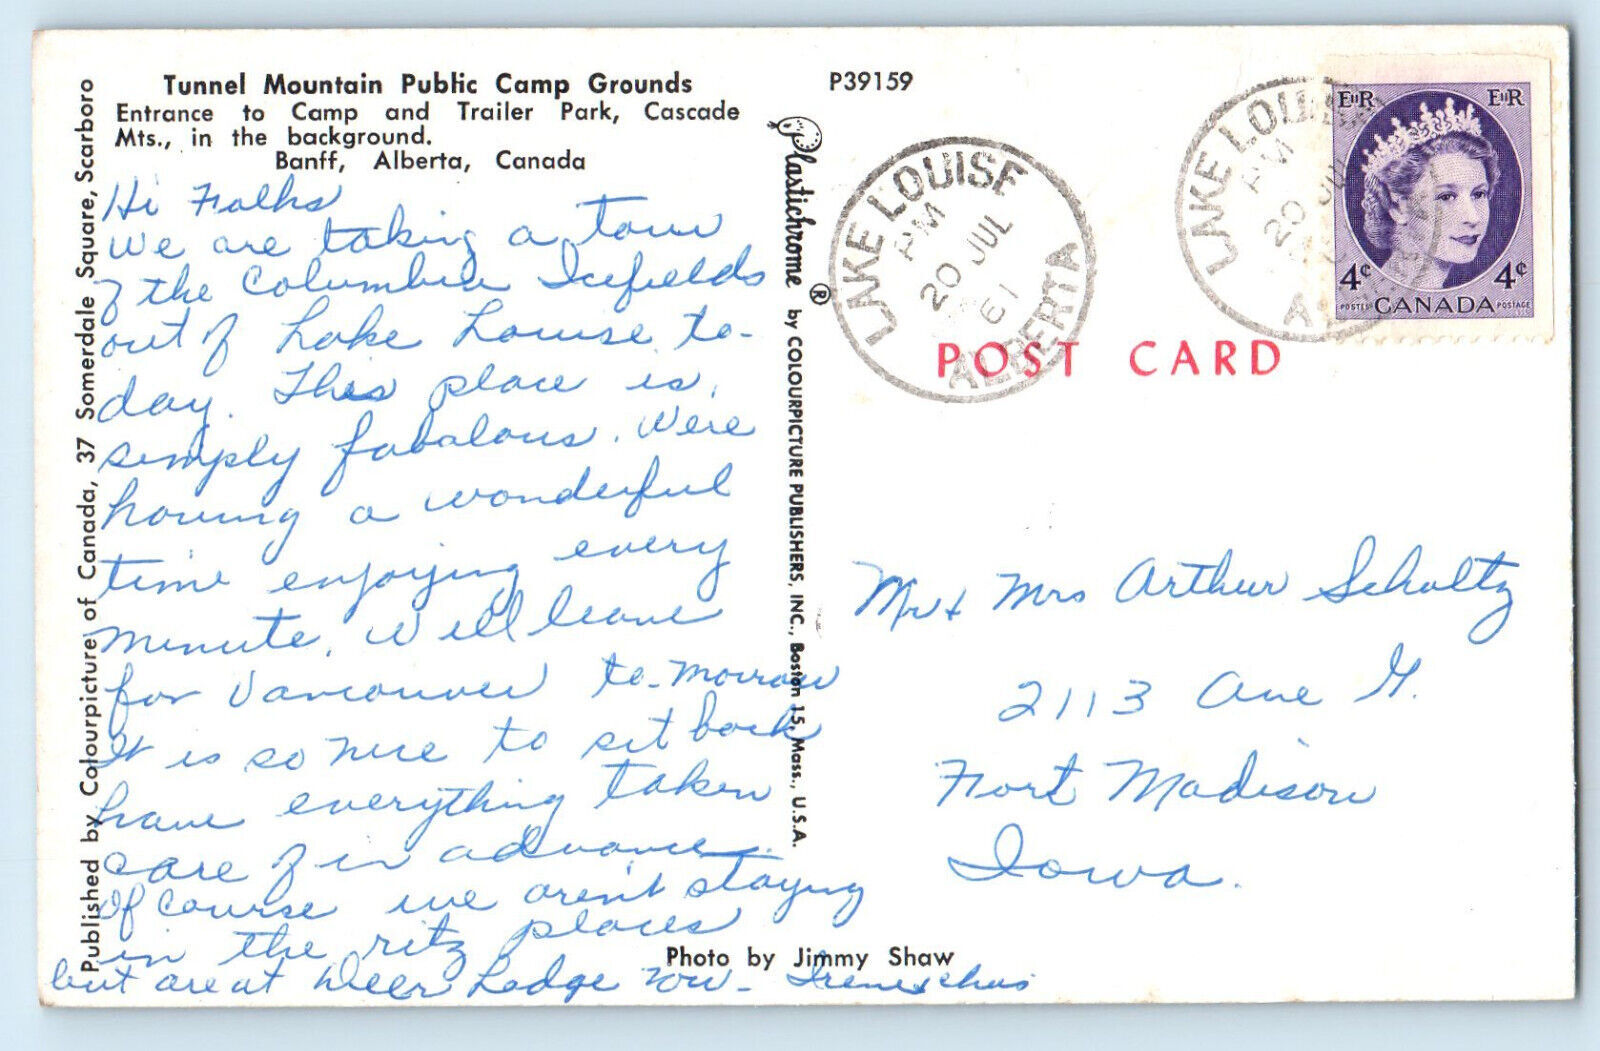 Tunnel Mountain Public Camp Grounds
Entrance to Camp and Trailer Park, Cascade
Mts., in the background.
Banff, Alberta, Canada
Hi Folks
We are taking a tour
of the Columbia Icefields
out of Lake Louise to-
day. This place is
simply fabalous. Were
having a wonderful
time enjoying every
minute. Will leave
for Vancouver to-morrow
It is so nice to sit back
have everything taken
care of in advance.
Of course we aren't staying
in the ritz places
but are at Deer Lodge now - Irene & Chas
Published by Colourpicture of Canada, 37 Somerdale Square, Scarboro
Plastichrome ® by COLOURPICTURE PUBLISHERS, INC., Boston 15, Mass., U.S.A.
P39159
LAKE LOUISE
PM
20 JUL
61
ALBERTA
LAKE LOUISE
PM
20 JUL
EIIR EIIR
4¢ 4¢
POSTES CANADA POSTAGE
POST CARD
Mr & Mrs Arthur Scholtz
2113 Ave G.
Fort Madison
Iowa.
Photo by Jimmy Shaw